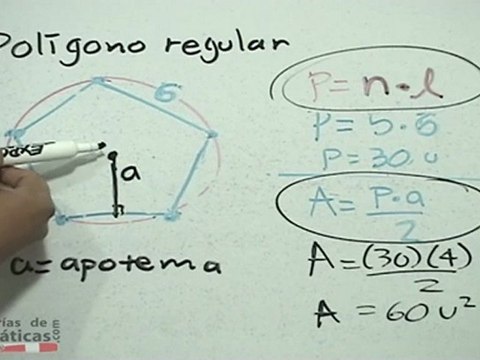 Polígono regular
6
a
a = apotema
P = n · l
P = 5 · 6
P = 30 u
A = P · a / 2
A = (30)(4) / 2
A = 60 u²
EXPO
rías de
áticas.com